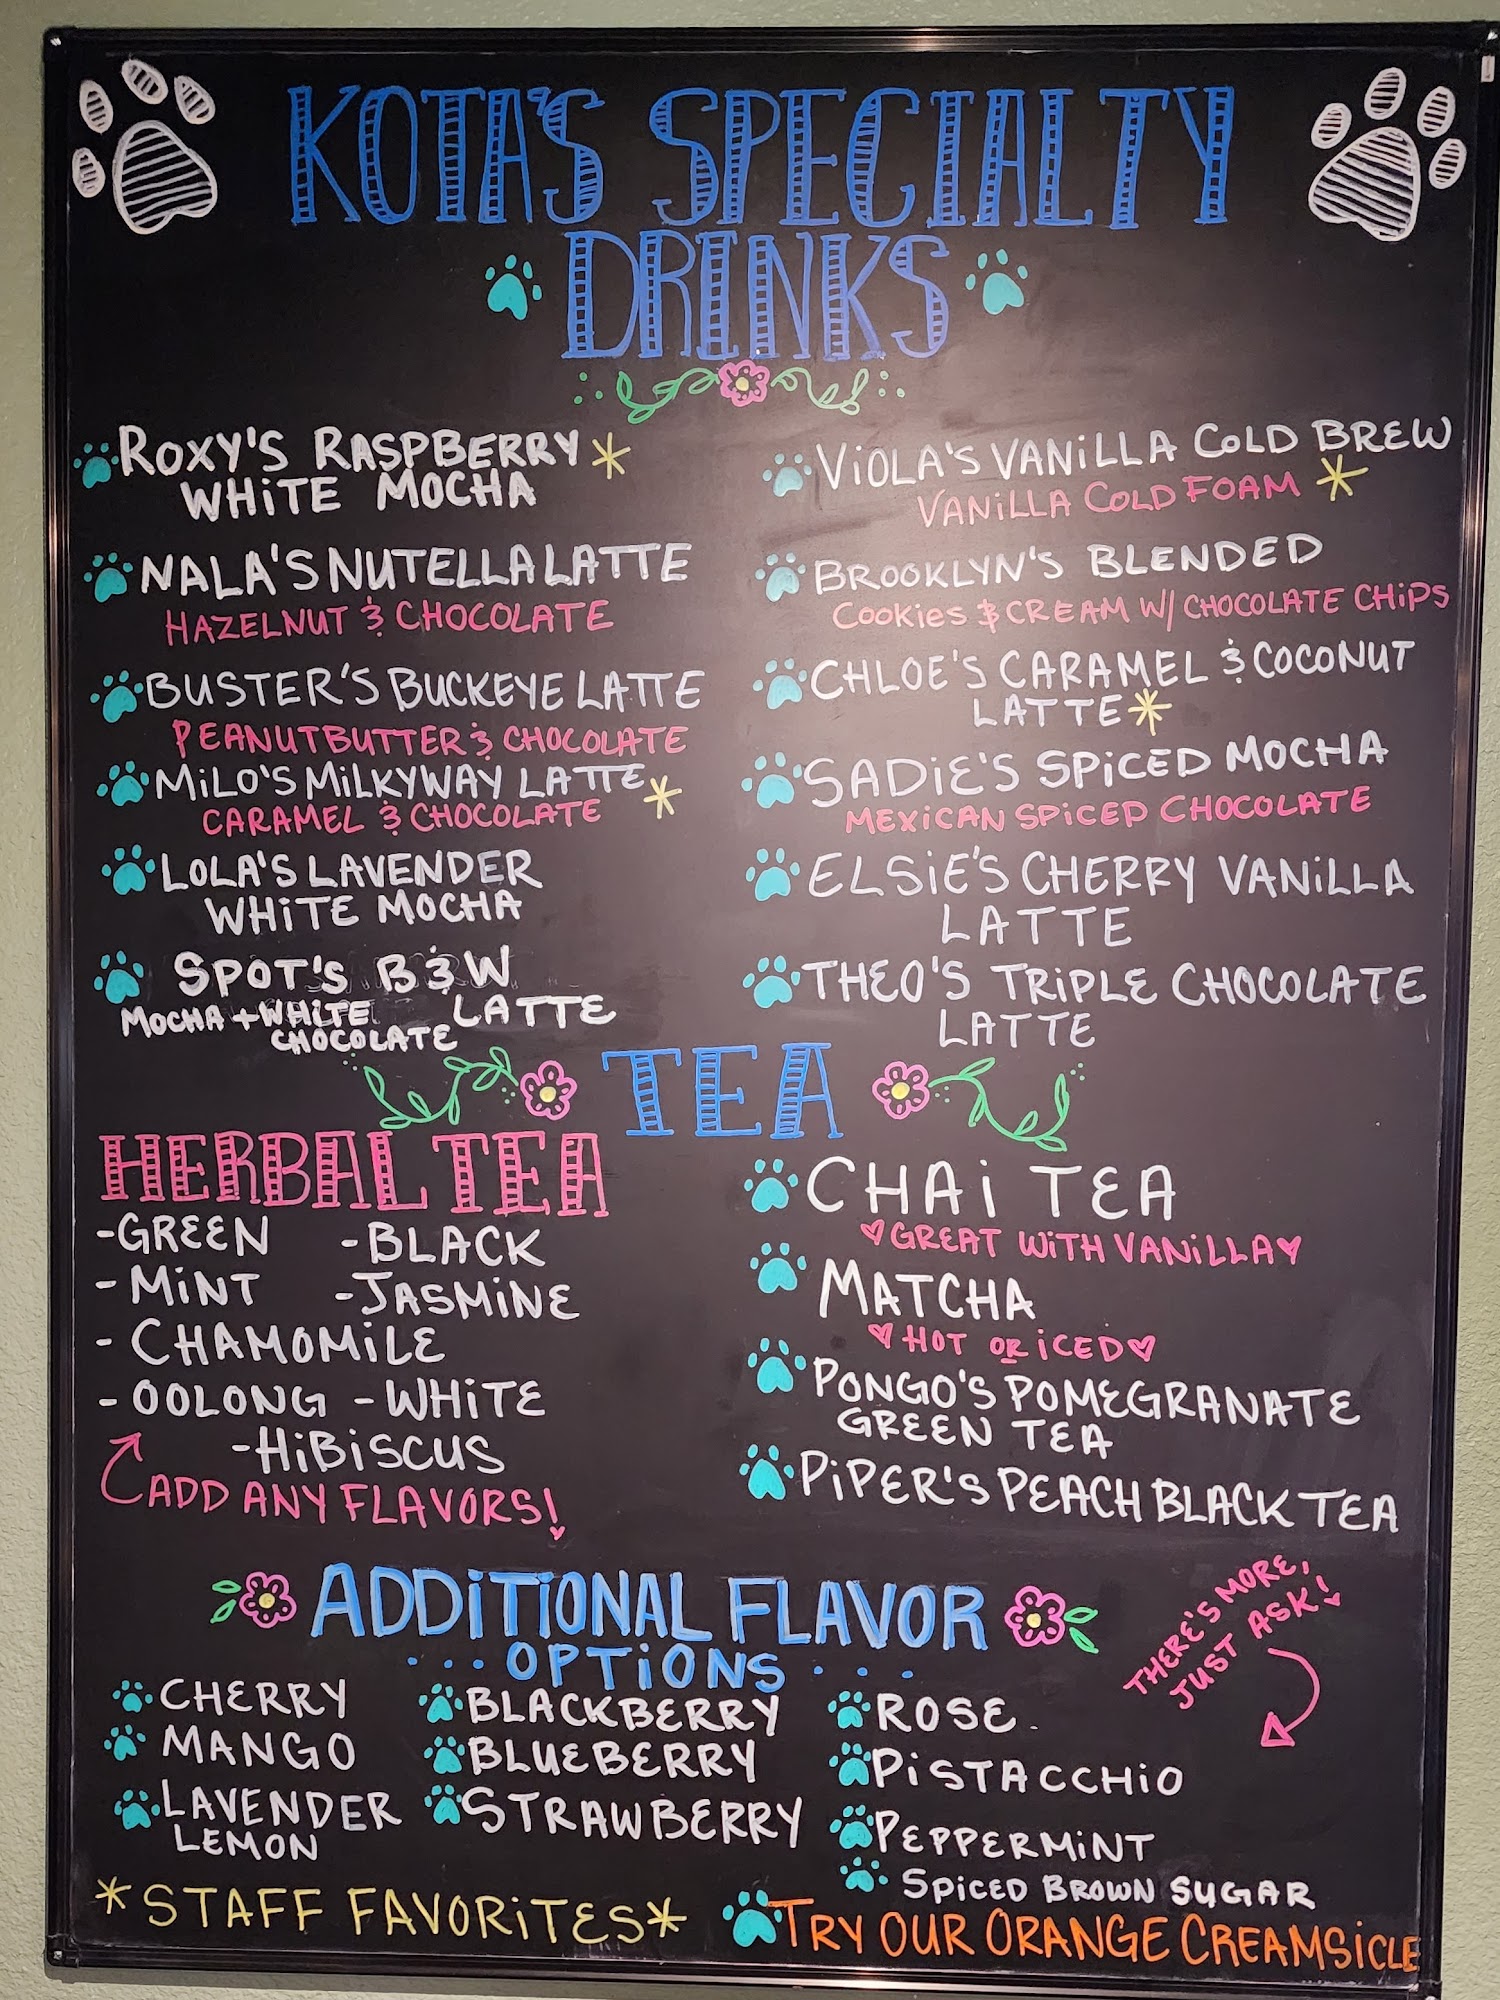 KOTA'S SPECIALTY
DRINKS
ROXY'S RASPBERRY *
WHiTE MOCHA
NALA'S NUTELLA LATTE
HAZELNUT & CHOCOLATE
BUSTER'S BUCKEYE LATTE
PEANUTBUTTER & CHOCOLATE
MiLO'S MiLKYWAY LATTE *
CARAMEL & CHOCOLATE
LOLA'S LAVENDER
WHiTE MOCHA
SPOT'S B & W
LATTE
MOCHA + WHITE
CHOCOLATE
ViOLA'S VANiLLA COLD BREW
VANiLLA COLD FOAM *
BROOKLYN'S BLENDED
COOKiES & CREAM W/ CHOCOLATE CHiPS
CHLOE'S CARAMEL & COCONUT
LATTE *
SADiE'S SPiCED MOCHA
MEXiCAN SPiCED CHOCOLATE
ELSiE'S CHERRY VANiLLA
LATTE
THEO'S TRiPLE CHOCOLATE
LATTE
TEA
HERBAL TEA
-GREEN -BLACK
-MiNT -JASMiNE
-CHAMOMiLE
-OOLONG -WHiTE
-HiBiSCUS
ADD ANY FLAVORS!
CHAi TEA
♥GREAT WiTH VANiLLA♥
MATCHA
♥HOT OR iCED♥
PONGO'S POMEGRANATE
GREEN TEA
PiPER'S PEACH BLACK TEA
ADDiTiONAL FLAVOR
...OPTiONS...
CHERRY
MANGO
LAVENDER
LEMON
BLACKBERRY
BLUEBERRY
STRAWBERRY
ROSE
PiSTACCHiO
PEPPERMiNT
SPiCED BROWN SUGAR
THERE'S MORE,
JUST ASK!
*STAFF FAVORiTES*
TRY OUR ORANGE CREAMSiCLE